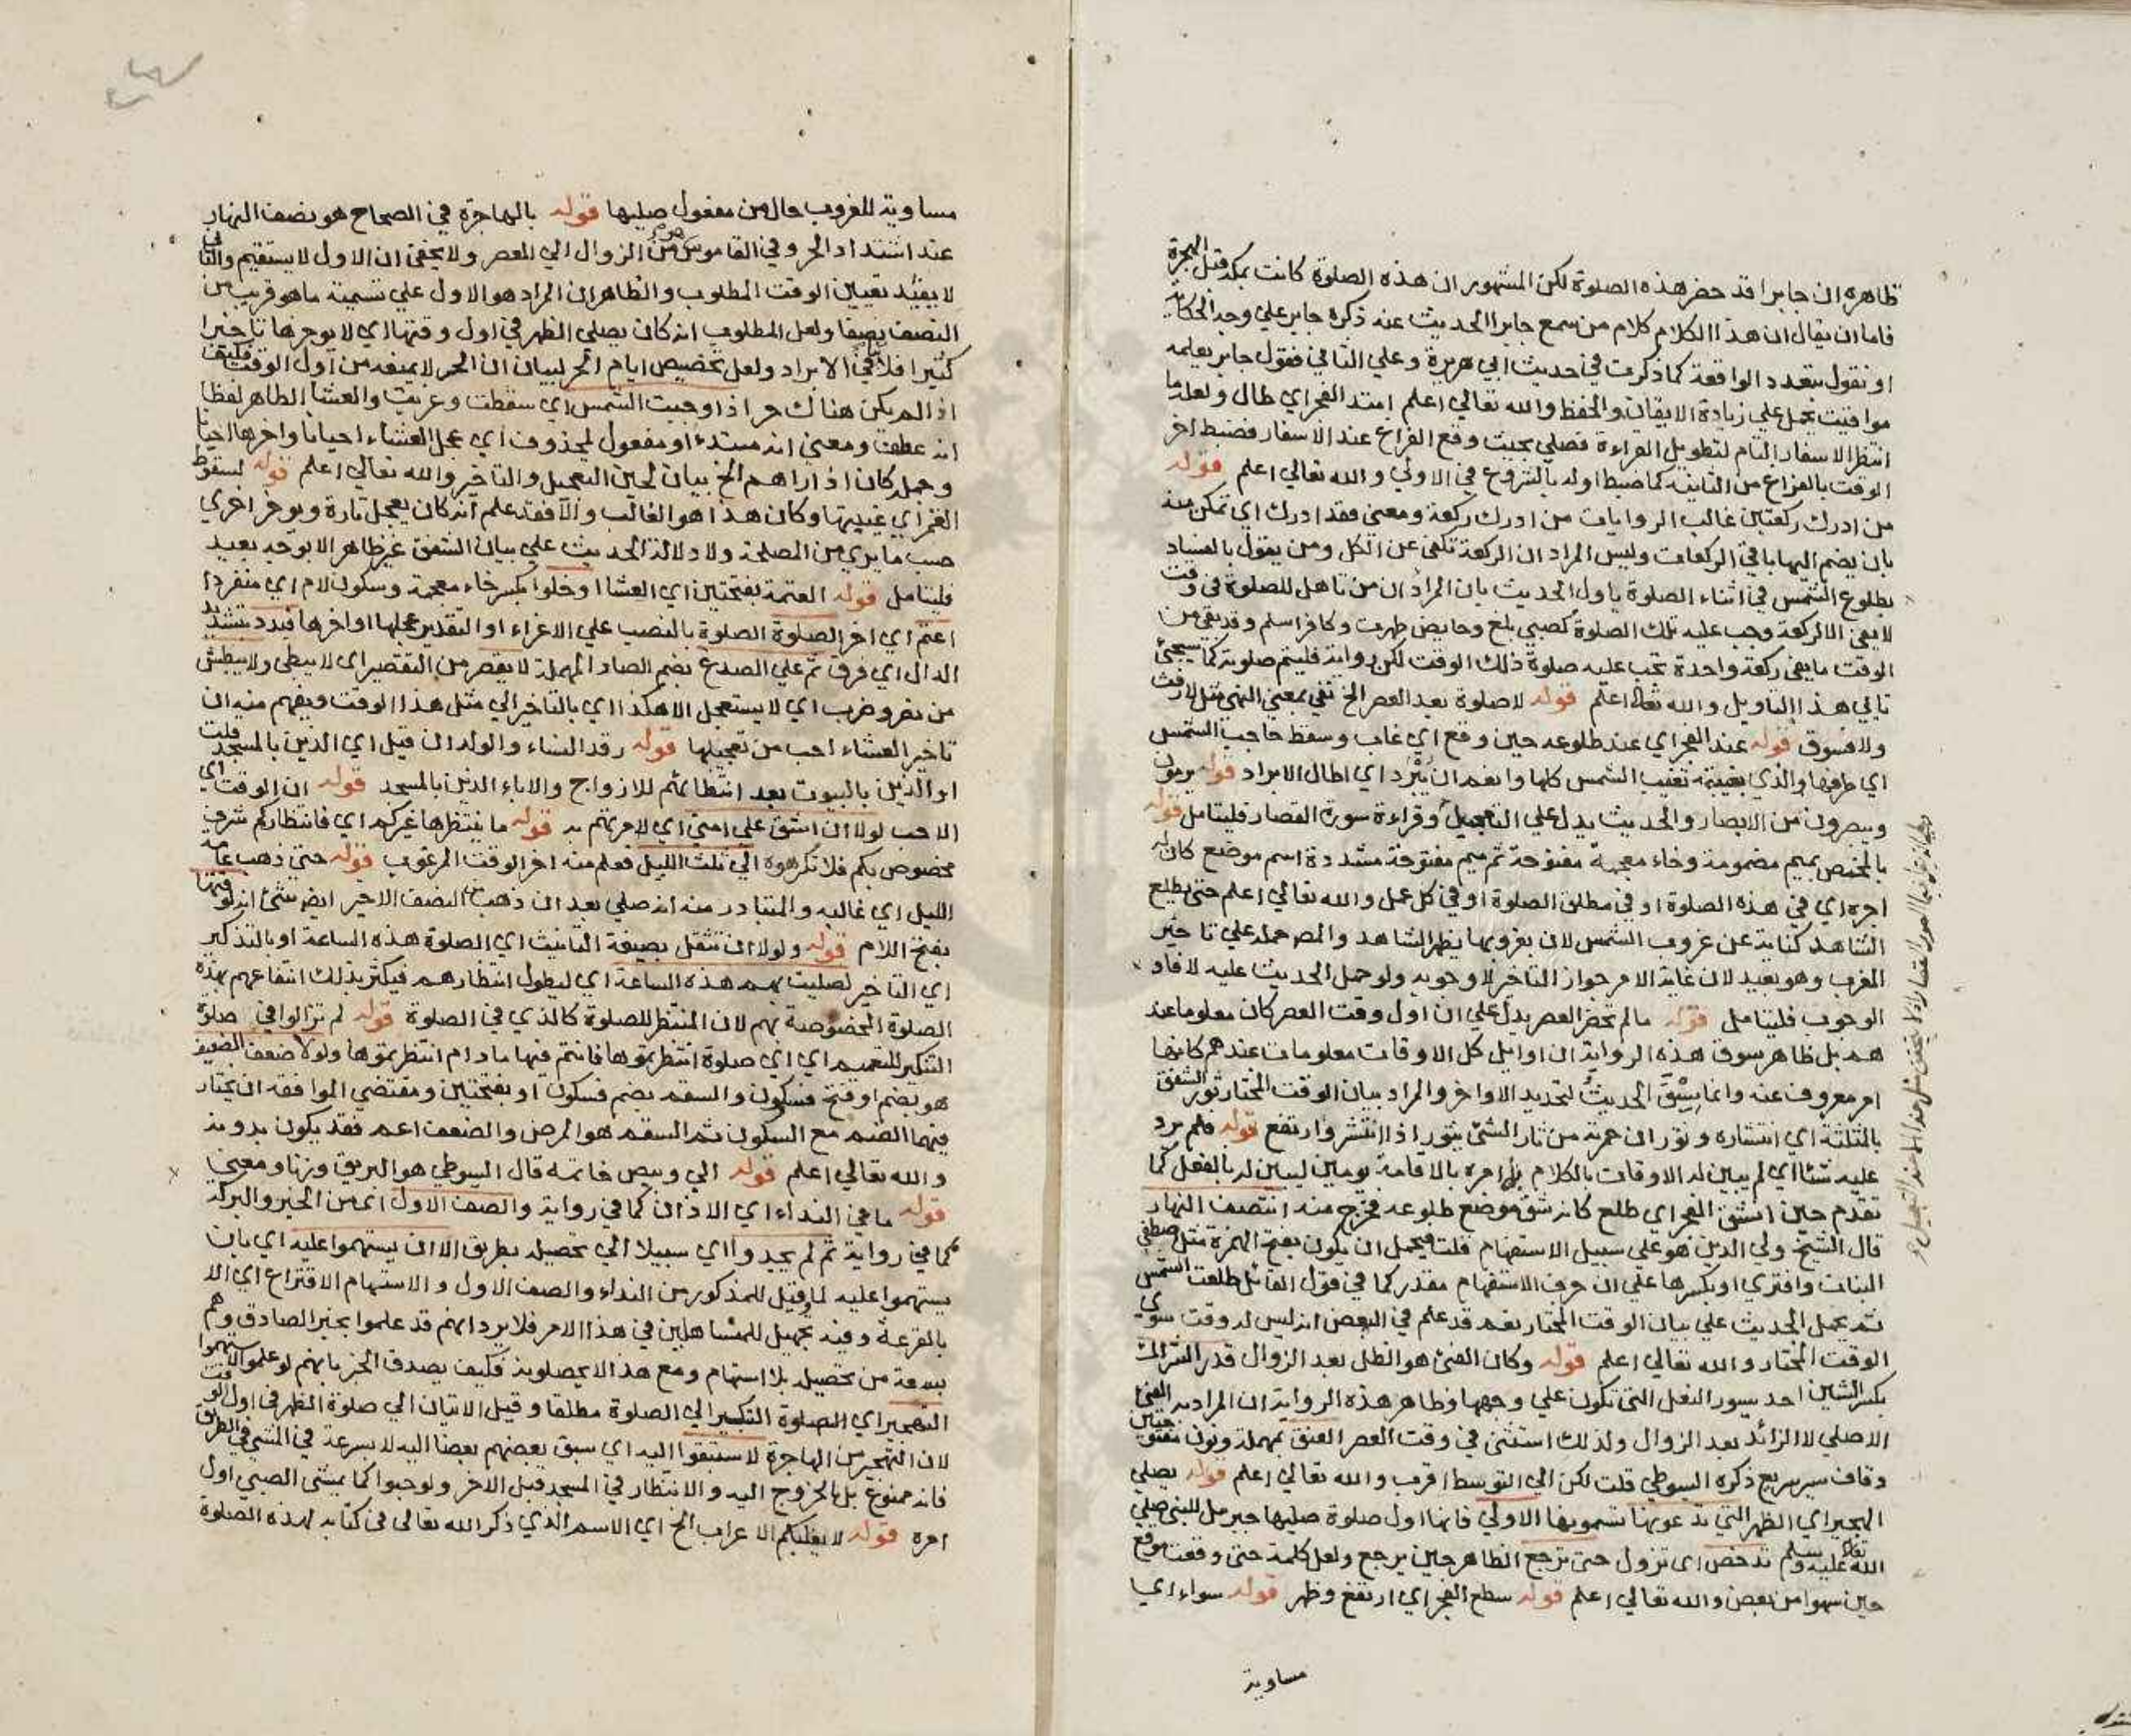 ظاهره ان جابرا قد حضر هذه الصلوة لكن المشهور ان هذه الصلوة كانت بمكة قبل الهجرة
فاما ان يقال ان هذا الكلام كلام من سمع جابرا الحديث عنه ذكره جابر علي وجه الحكاية
او نقول بتعدد الواقعة كما ذكرت في حديث ابي هريرة وعلي الثاني فقول جابر يعلمه
مواقيت يحمل علي زيادة الايقان والحفظ والله تعالي اعلم امتد الفجر اي طال ولعله ما
انتظر الاسفار التام لتطويل القراءة فصلي بحيث وقع الفراغ عند الاسفار فضبط اخر
الوقت بالفراغ من الثانية كما ضبط اوله بالشروع في الاولي والله تعالي اعلم قوله
من ادرك ركعتين غالب الروايات من ادرك ركعة ومعني فقد ادرك اي تمكن منه
بان يضم اليها باقي الركعات وليس المراد ان الركعة تكفي عن الكل ومن يقول بالفساد
بطلوع الشمس في اثناء الصلوة يأول الحديث بان المراد ان من تاهل للصلوة في وقت
لا يفي الا لركعة وجب عليه تلك الصلوة كصبي بلغ وحايض طهرت وكافر اسلم وقد بقي من
الوقت ما يفي ركعة واحدة تجب عليه صلوة ذلك الوقت لكن رواية فليتم صلوته كما سيجئ
تابي هذا التاويل والله تعالى اعلم قوله لا صلوة بعد العصر الخ نفي بمعني النهي مثل لا رفث
ولا فسوق قوله عند الفجر اي عند طلوعه حين وقع اي غاب وسقط حاجب الشمس
اي طرفها والذي بغيبته تغيب الشمس كلها وانعم ان يبرد اي اطال الابراد قوله يرمون
ويبصرون من الابصار والحديث يدل علي التعجيل وقراءة سورة القصار فليتامل قوله
بالمخمص بميم مضمومة وخاء معجمة مفتوحة ثم ميم مفتوحة مشددة اسم موضع كان له
اجره اي في هذه الصلوة او في مطلق الصلوة او في كل عمل والله تعالي اعلم حتي يطلع
الشاهد كناية عن غروب الشمس لان بغروبها يظهر الشاهد والمص حمله علي تاخير
المغرب وهو بعيد لان غاية الامر جواز التاخر لا وجوبه ولو حمل الحديث عليه لافاد
الوجوب فليتامل قوله ما لم تحضر العصر يدل علي ان اول وقت العصر كان معلوما عند
هم بل ظاهر سوق هذه الرواية ان اوايل كل الاوقات معلومات عندهم كانها
امر معروف عنه وانما سيق الحديث لتحديد الاواخر والمراد بيان الوقت المختار ثور الشفق
بالمثلثة اي انتشاره وثوران حمرته من ثار الشئ يثور اذا انتشر وارتفع قوله فلم يرد
عليه شئا اي لم يبين له الاوقات بالكلام بل امره بالاقامة يومين ليبين له بالفعل كما
تقدم حين انشق الفجر اي طلع كانه شق موضع طلوعه فخرج منه انتصف النهار
قال الشيخ ولي الدين هو علي سبيل الاستفهام قلت فيحمل ان يكون بفتح الهمزة مثل اصطفي
البنات وافتري او بكسرها علي ان حرف الاستفهام مقدر كما في قول القائل طلعت الشمس
ثم يحمل الحديث علي بيان الوقت المختار نعم قد علم في البعض انه ليس له وقت سوي
الوقت المختار والله تعالي اعلم قوله وكان الفئ هو الظل بعد الزوال قدر الشراك
بكسر الشين احد سيور النعل التي تكون علي وجهها وظاهر هذه الرواية ان المراد به الفئ
الاصلي لا الزائد بعد الزوال ولذلك استثني في وقت العصر العنق بمهملة ونون مفتوحتين
وقاف سير سريع ذكره السيوطي قلت لكن الي التوسط اقرب والله تعالي اعلم قوله يصلي
الهجير اي الظهر التي تدعونها تسمونها الاولي فانها اول صلوة صليها جبرئل للنبي صلي
الله تعالى عليه وسلم تدحض اي تزول حتي ترجع الظاهر حين يرجع ولعل كلمة حتي وقعت موقع
حين سهوا من بعض والله تعالي اعلم قوله سطع الفجر اي ارتفع وظهر قوله سواء اي
مساوية
مساوية للغروب حال من مفعول صليها قوله بالهاجرة في الصحاح هو نصف النهار
عند اشتداد الحر وفي القاموس هو من الزوال الي العصر ولا يخفي ان الاول لا يستقيم والثاني
لا يفيد تعيين الوقت المطلوب والظاهر ان المراد هو الاول علي تسمية ما هو قريب من
النصف نصفا ولعل المطلوب انه كان يصلي الظهر في اول وقتها اي لا يوخرها تاخيرا
كثيرا فلا ينافي الابراد ولعل تخصيص ايام الحر لبيان ان الحر لا يمنعه من اول الوقت فكيف
اذا لم يكن هناك حر اذا وجبت الشمس اي سقطت وغربت والعشا الظاهر لفظا
انه عطف ومعني انه مبتدء او مفعول لمحذوف اي عجل العشاء احيانا واخرها احيانا
وجملة كان اذا راهم الخ بيان لحين التعجيل والتاخير والله تعالي اعلم قوله لسقوط
القمر اي غيبتها وكان هذا هو الغالب والا فقد علم انه كان يعجل تارة ويوخر اخري
حسب ما يري من المصلحة ولا دلالة الحديث علي بيان الشفق غير ظاهر الا بوجه بعيد
فليتامل قوله العتمة بفتحتين اي العشا او خلوا بكسر خاء معجمة وسكون لام اي منفردا
اعتم اي اخر الصلوة الصلوة بالنصب علي الاغراء او التقدير عجلها او اخرها فبدد بتشديد
الدال اي فرق ثم علي الصدغ بضم الصاد المهملة لا يقصر من التقصير اي لا يبطي ولا يبطش
من نصر وضرب اي لا يستعجل الا هكذا اي بالتاخير الي مثل هذا الوقت ويفهم منه ان
تاخير العشاء احب من تعجيلها قوله رقد النساء والولدان قيل اي الذين بالمسجد قلت
او الذين بالبيوت بعد انتظارهم للازواج والاباء الذين بالمسجد قوله ان الوقت اي
الاحب لولا ان اشق علي امتي اي لامرتهم به قوله ما ينتظرها غيركم اي فانتظاركم شرف
مخصوص بكم فلا تكرهوه الي ثلث الليل فعلم منه اخر الوقت المرغوب قوله حتي ذهب عامة
الليل اي غالبه والمتبادر منه انه صلي بعد ان ذهب من النصف الاخير ايض شئ انه لوقتها
بفتح اللام قوله ولولا ان تثقل بصيغة التانيث اي الصلوة هذه الساعة او بالتذكير
اي التاخير لصليت بهم هذه الساعة اي ليطول انتظارهم فيكثر بذلك انتفاعهم بهذه
الصلوة المخصوصة بهم لان المنتظر للصلوة كالذي في الصلوة قوله لم تزالوا في صلوة
التنكير للتعميم اي اي صلوة انتظرتموها فانتم فيها ما دام انتظرتموها ولولا ضعف الضعيف
هو بضم او فتح فسكون والسقم بضم فسكون او بفتحتين ومقتضي الموافقة ان يختار
فيهما الضم مع السكون ثم السقم هو المرض والضعف اعم فقد يكون بدونه
والله تعالي اعلم قوله الي وبيص خاتمه قال السيوطي هو البريق وزنا ومعني
قوله ما في النداء اي الاذان كما في رواية والصف الاول اي من الخير والبركة
كما في رواية ثم لم يجدوا اي سبيلا الي تحصيله بطريق الا ان يستهموا عليه اي بان
يستهموا عليه لما قيل للمذكور من النداء والصف الاول والاستهام الاقتراع اي الا
بالقرعة وفيه تجهيل للمتساهلين في هذا الامر فلا يرد انهم قد علموا بخبر الصادق وهم
بسعة من تحصيله بلا استهام ومع هذا لا يحصلونه فكيف يصدق الخبر بانهم لو علموا لاستهموا
التهجير اي الصلوة التبكير الي الصلوة مطلقا وقيل الاتيان الي صلوة الظهر في اول الوقت
لان التهجير من الهاجرة لاستبقوا اليه اي سبق بعضهم بعضا اليه لا بسرعة في المشي في الطريق
فانه ممنوع بل بالخروج اليه والانتظار في المسجد قبل الاخر ولو حبوا كما يمشي الصبي اول
امره قوله لا يغلبكم الاعراب الخ اي الاسم الذي ذكر الله تعالي في كتابه لهذه الصلوة